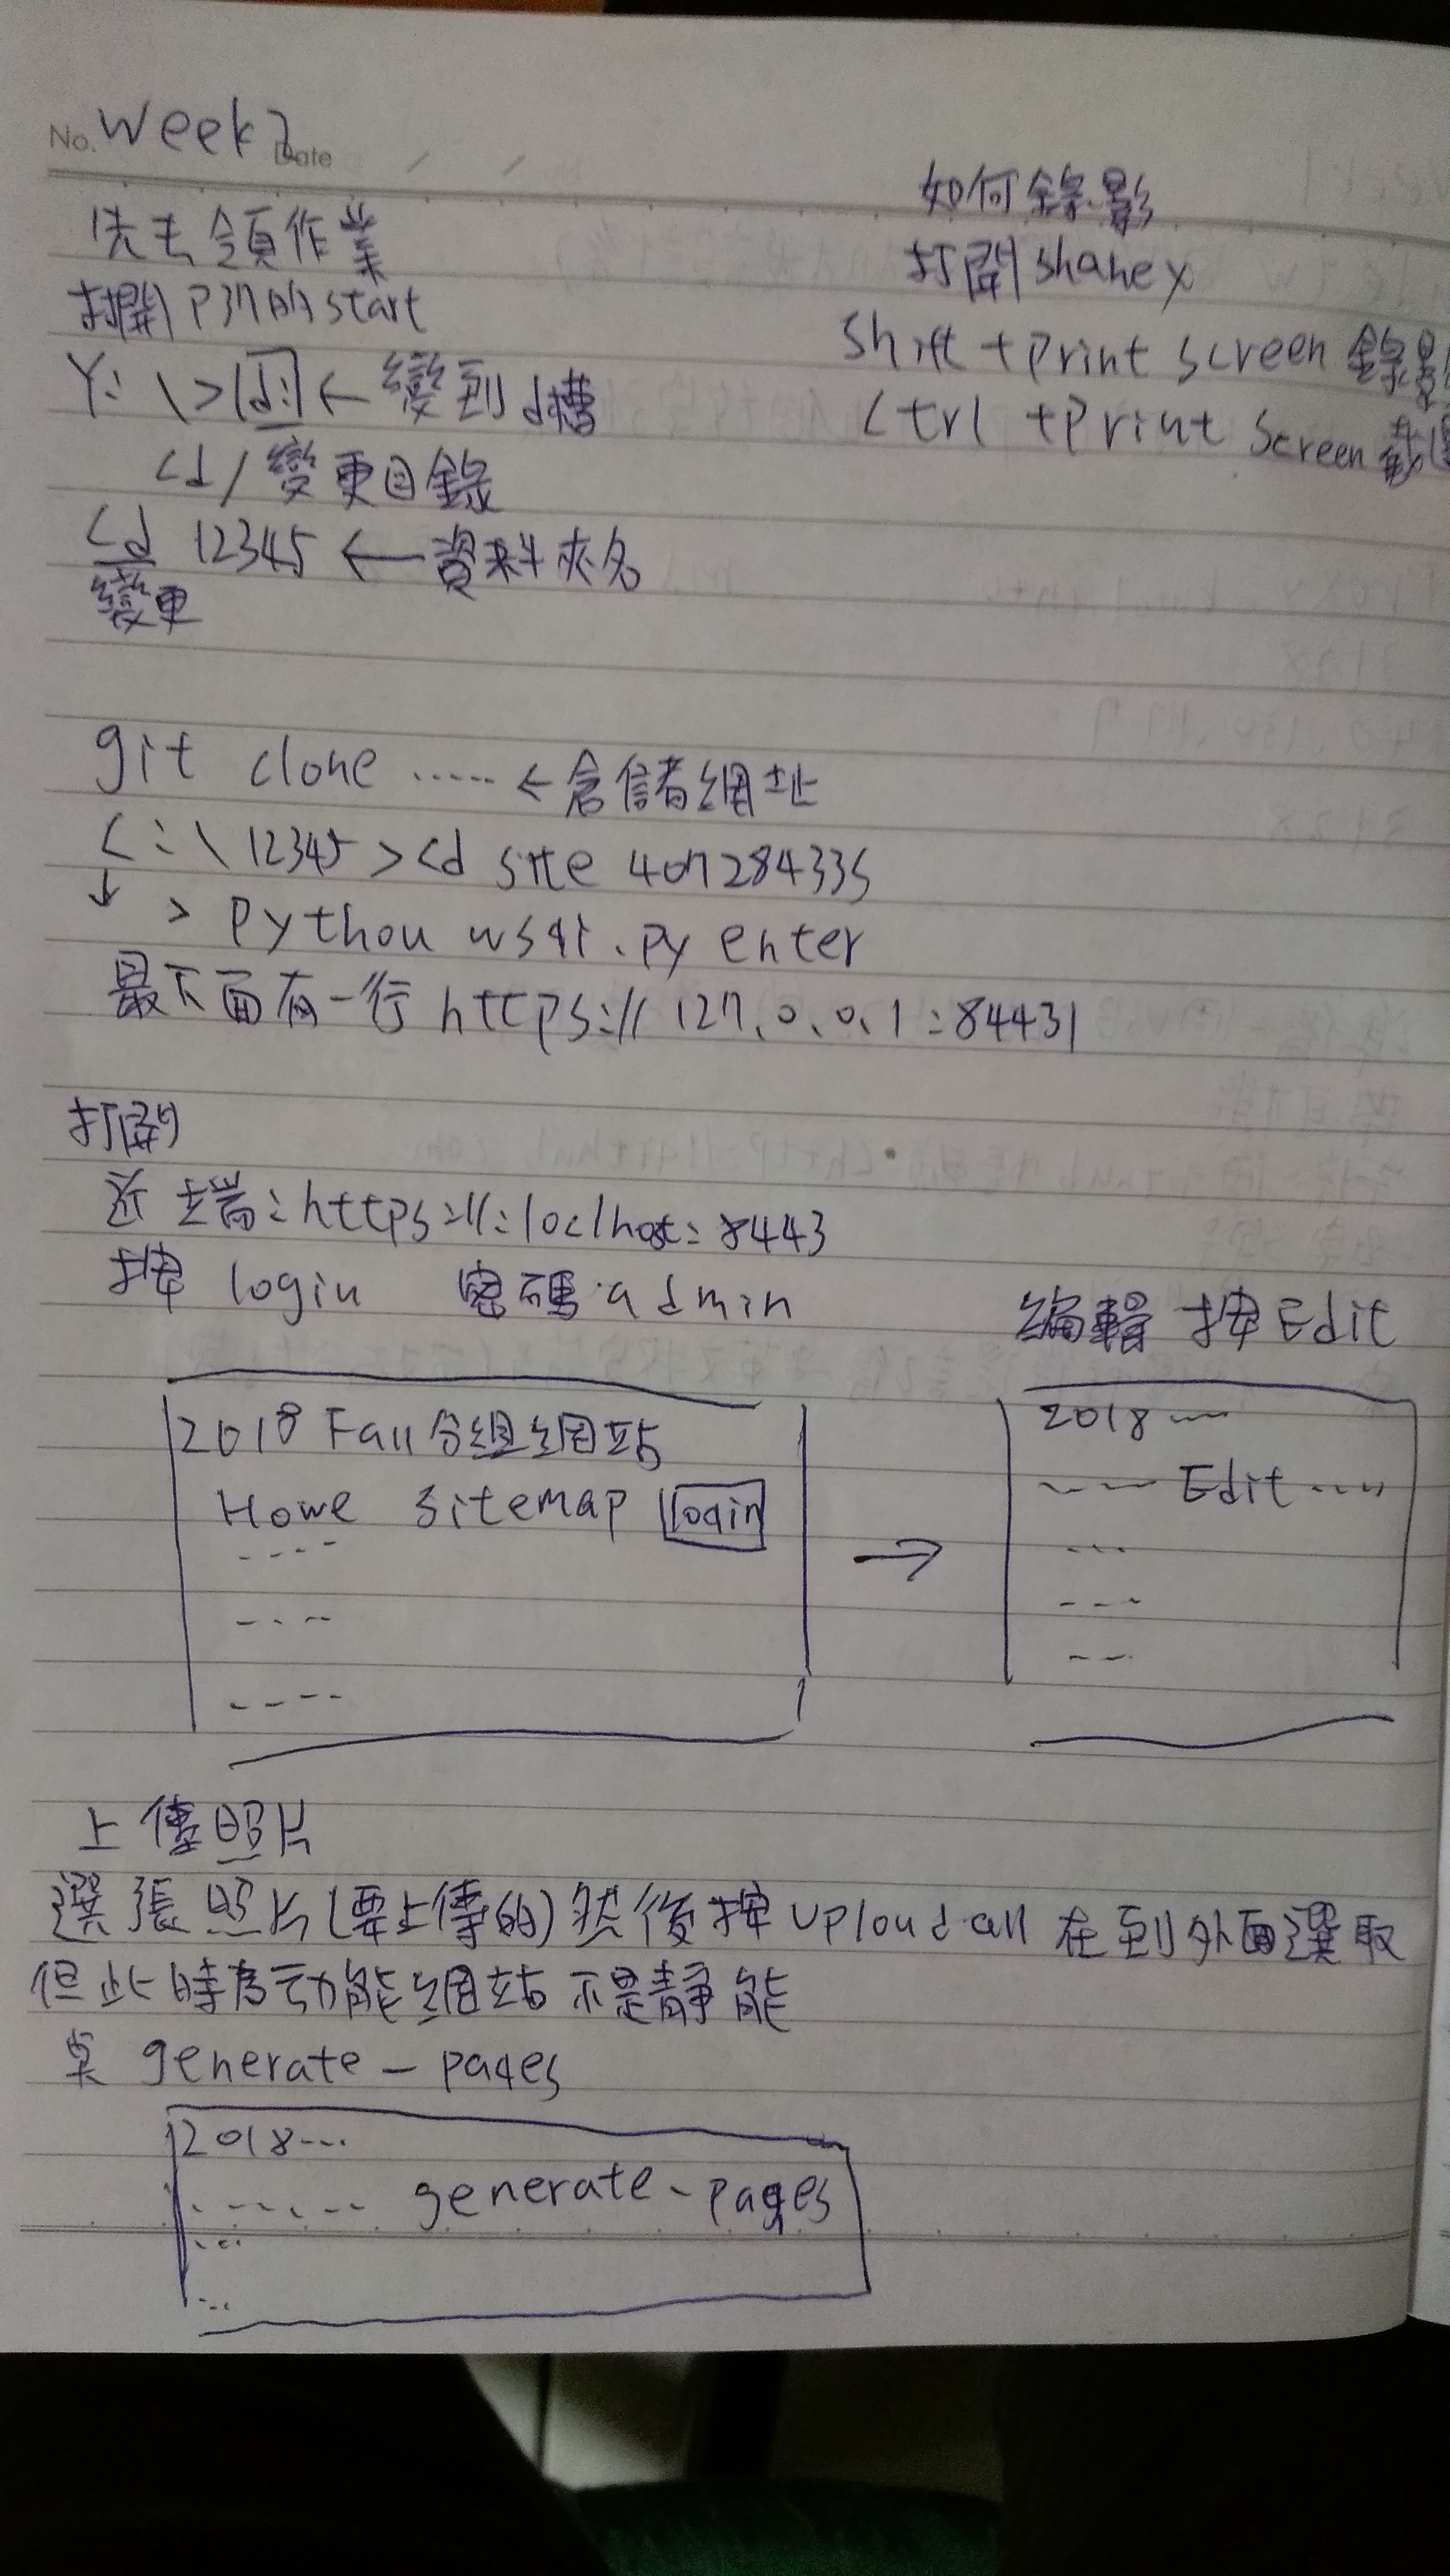 No. Week 2 Date
先去領作業
打開P37的start
Y:\>d: ← 變到d槽
cd / 變更目錄
cd 12345 ← 資料夾名
變更
如何錄影
打開 sharex
Shift + Print Screen 錄影
Ctrl + Print Screen 截
git clone ..... ← 倉儲者網址
C:\12345>cd site 40728433
↓ > python wsgi.py enter
最下面有一行 https://127.0.0.1:84431
打開
近端:https://:loclhost:8443
按 login 密碼:admin
編輯 按Edit
2018 Fall 分組網站
Home Sitemap login
→
2018
Edit ....
上傳照片
選張照片(要上傳的)然後按 uploud all 在到外面選取
但此時為动能網站 不是靜能
generate - pages
2018...
generate - pages